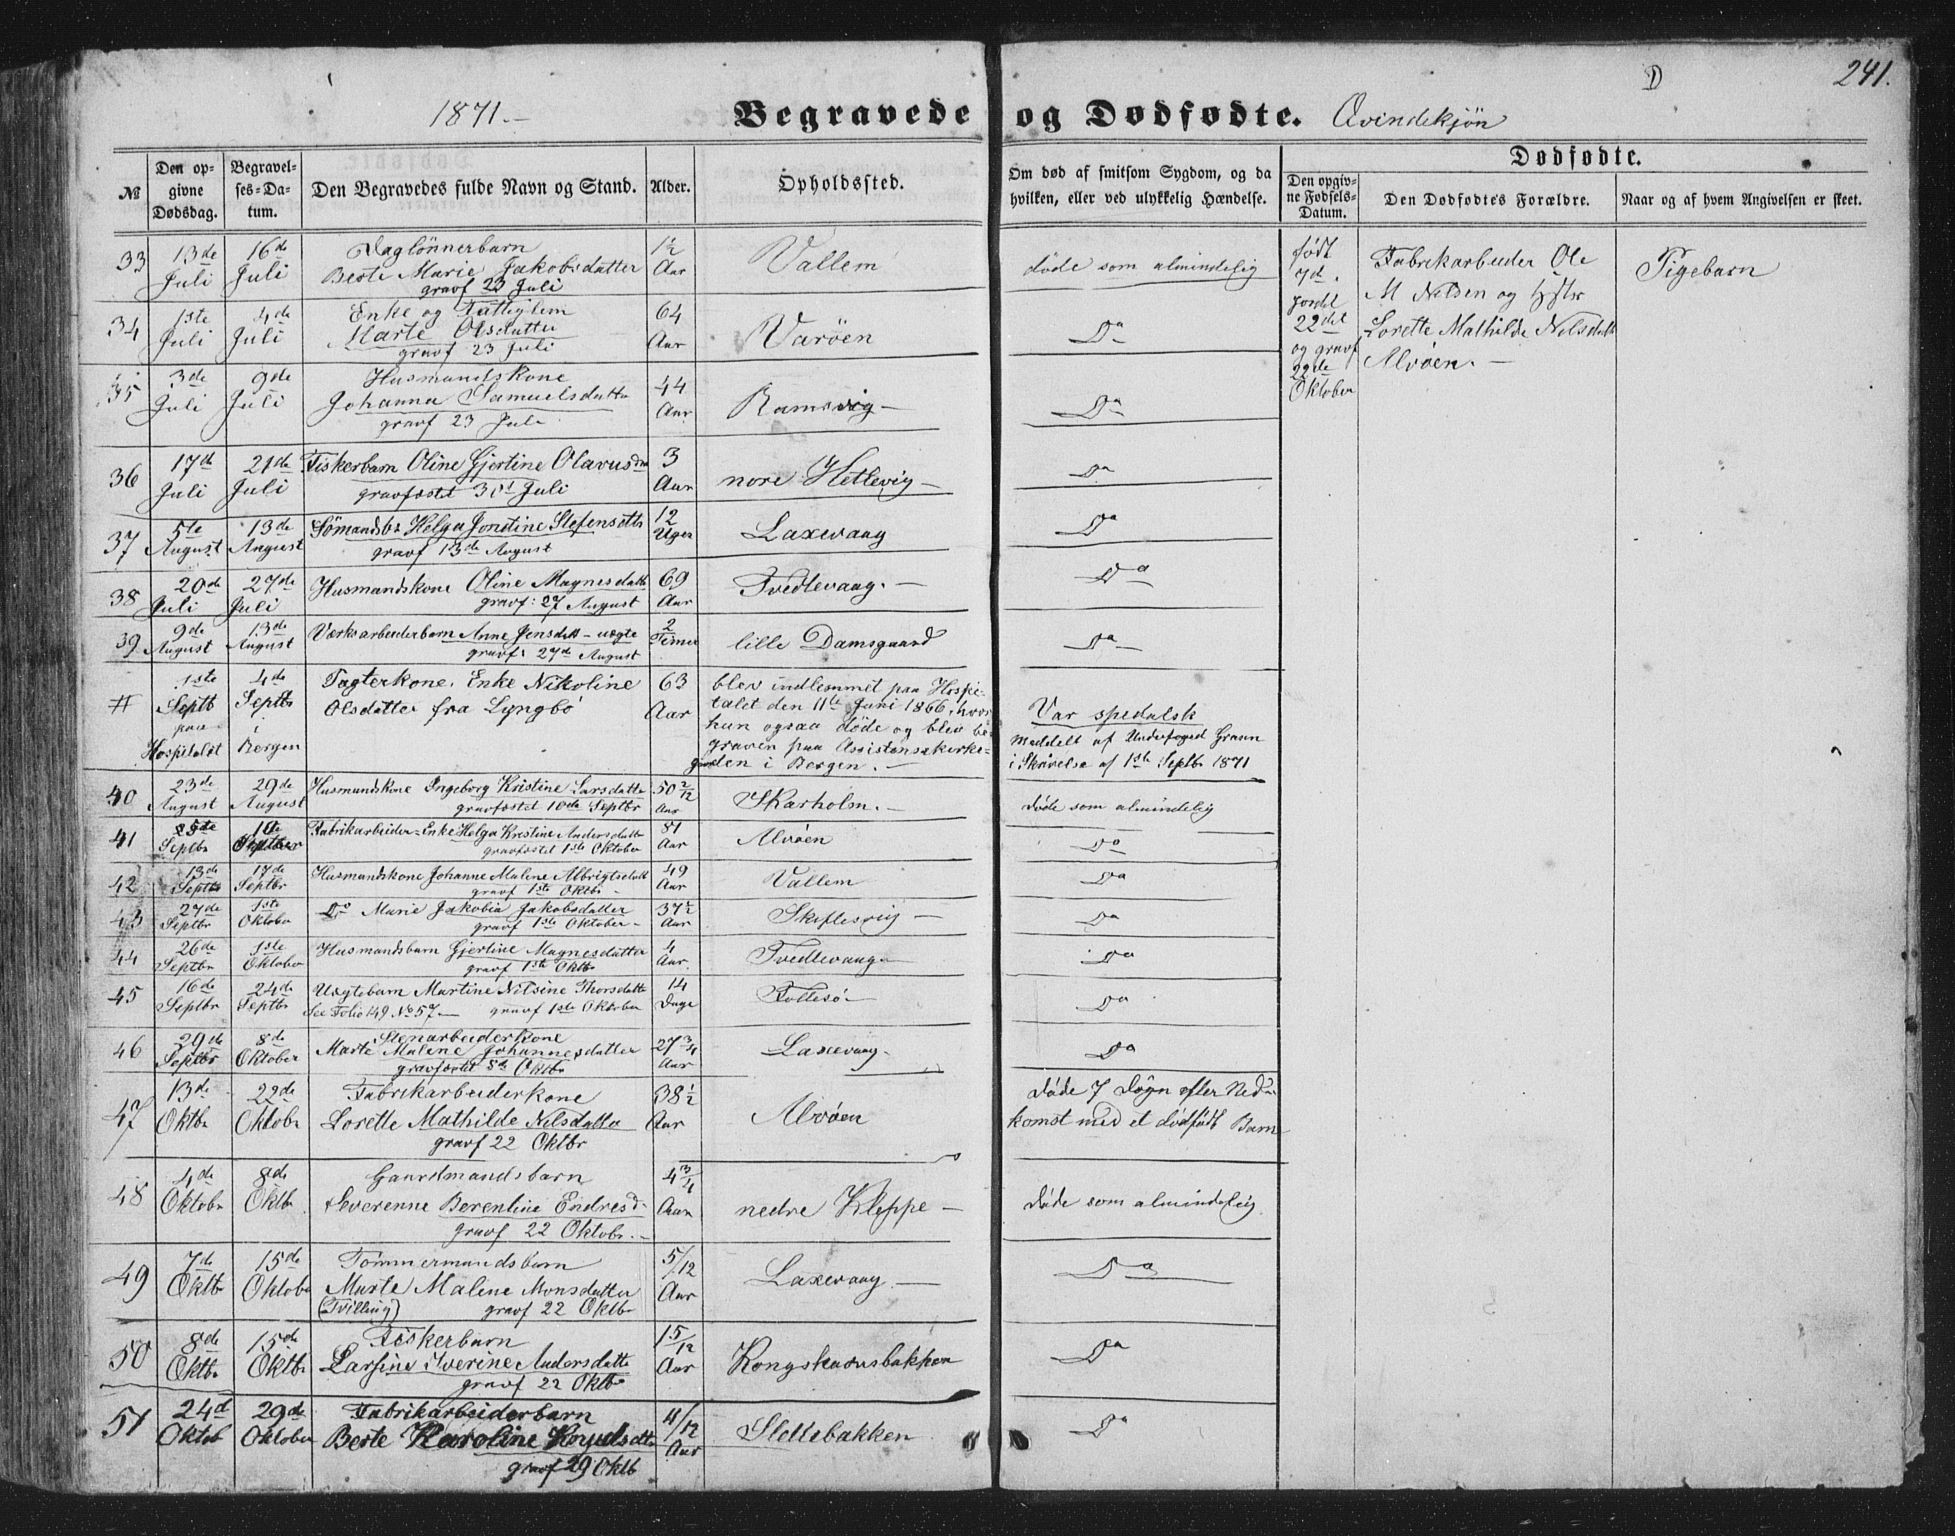 241.
D
1871.–
Begravede og Dødfødte. Qvindekjön
Dødfødte.
№ Den opgivne Dødsdag. Begravelses-Datum. Den Begravedes fulde Navn og Stand. Alder. Opholdssted. Om død af smitsom Sygdom, og da hvilken, eller ved ulykkelig Hændelse. Den opgivne Fødsels-Datum. Den Dødfødtes Forældre. Naar og af hvem Angivelsen er skeet.
33 13de Juli 16de Juli Daglönnerbarn Berte Marie Jakobsdatter gravf 23 Juli 1½ Aar Vallem döde som almindelig
født 7d. jordet 22det og gravf 22de Oktober Fabrikarbeider Ole M Nilsen og Hstr Lorette Mathilde Nilsdatt Alvöen.– Pigebarn
34 1ste Juli 4de Juli Enke og Fattiglem Marte Olsdatter gravf 23 Juli 64 Aar Varöen Do
35 3de Juli 9de Juli Husmandskone Johanna Samuelsdatter gravf 23 Juli 44 Aar Ramsvig – Do
36 17de Juli 21de Juli Fiskerbarn Oline Gjertine Olavusdtr gravfæstet 30t Juli 3 Aar nore Hetlevig – Do
37 5te August 13de August Sömandsb: Helga Jonstine Stefensdtr gravf 13de August 12 Uger Laxevaag Do
38 20de Juli 27de Juli Husmandskone Oline Magnesdatt gravf: 27 August 69 Aar Tvedtevaag. – Do
39 9de August 13de August Værksarbeiderbarn Anne Jensdatt – uægte gravf: 27de August 2 Timer lille Damsgaard Do
# 1ste Septb paa Hospitalet 4de Septbr i Bergen Enke Nikoline Olsdatter fra Lyngbö 63 Aar blev indlemmet paa Hospitalet den 11te Juni 1866, hvor hun ogsaa döde og blev begraven paa Assistenskirkegaarden i Bergen. – Var spedalsk Meddelt af Underfoged Graun i Skrivelse af 1ste Septbr 1871
40 23de August 29de August Husmandskone Ingeborg Kristine Larsdatter gravfæstet 10de Septbr 50 2/12 Aar Skarholm. – döde som almindelig
41 Septbr Fabrikarbeider-Enke Helga Kristine Andersdatter gravfæstet 1ste Oktober 81 Aar Alvöen Do
42 13de Septbr 17de Septbr Husmandskone Johanne Malene Albrigtsdatt gravf 1ste Oktbr – 49 Aar Vallem Do
43 27de Septbr 1ste Oktober Do Marie Jakobia Jakobsdatter gravf 1ste Oktober – 37½ Aar Skiftesvig – Do
44 26de Septbr 1ste Oktober Husmandsbarn Gjertine Magnesdatter gravf 1ste Oktbr 4 Aar Tvedtevaag – Do
45 16de Septbr 24de Septbr Uægtebarn Martine Nilsine Thorsdatter See Folio 149 No 57. – gravf 1ste Oktober 14 Dage Foltesö – Do
46 29de Septbr 8de Oktober Stenarbeiderkone Marte Malene Johannesdatter gravfæstet 8de Oktbr 27¾ Aar Laxevaag. Do
47 13de Oktbr 22de Oktober Fabrikarbeiderkone Lorette Mathilde Nilsdatter gravf 22 Oktbr 38½ Aar Alvöen döde 7 Dögn efter Nedkomst med et dödfödt Barn
48 4de Oktober 8de Oktb Gaardmandsbarn Severenne Berentine Endresd. gravf 22 Oktobr. – 4¾ Aar nedre Kleppe – döde som almindelig
49 7de Oktb 15de Oktober Tömmermandsbarn Marte Malene Monsdatter (Tvilling) gravf 22 Oktbr 5/12 Aar Laxevaag. – Do
50 8de Oktbr 15de Oktb Fiskerbarn Larsine Iverine Andersdatter gravf 22 Oktbr 15/12 Aar Kongshavnsbakken Do
51 24d Oktob 29de Oktober Fabrikarbeiderbarn Berte Karoline Knudsdtr gravf 29 Oktb 11/12 Aar Slettebakken Do